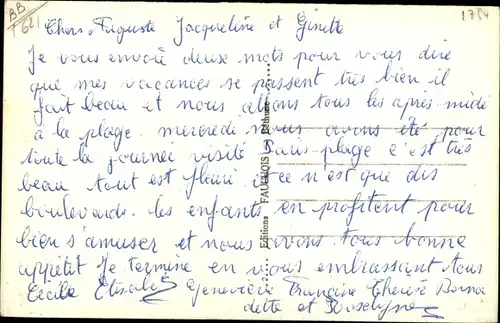 AB
T 621
1754
Chers Auguste Jacqueline et Ginette
Je vous envoie deux mots pour vous dire
que mes vacances se passent très bien il
fait beau et nous allons tous les après-midi
à la plage. mercredi nous avons été pour
toute la journée visité Paris-plage c'est très
beau tout est fleuri et ce n'est que des
boulevards. les enfants en profitent pour
bien s'amuser et nous avons tous bonne
appétit Je termine en vous embrassant tous
Cécile Elisabe Geneviève Francine Thérèse Berna
dette et Roselyne
Editions FAUCHOIS